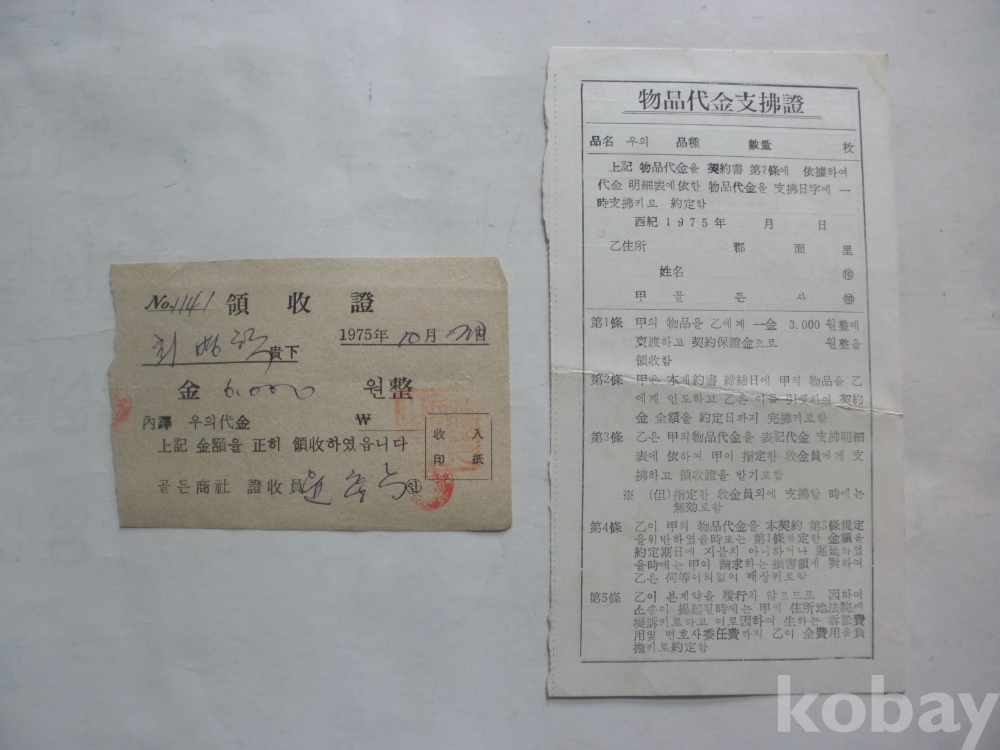 No. 1141 領收證
貴下 1975年 10月 日
金 6,000 원整
內譯 우의代金 ₩
上記 金額을 正히 領收하였읍니다
골든商社 證收員 ㊞
收入
印紙
物品代金支拂證
品名 우의 品種 數量 枚
上記 物品代金을 契約書 第2條에 依據하여
代金 明細表에依한 物品代金을 支拂日字에 一
時支拂키로 約定함
西紀 1975年 月 日
乙住所 郡 面 里
姓名 ㊞
甲 골 든 사 ㊞
第1條 甲의 物品을 乙에게 一金 3.000 원整에
賣渡하고 契約保證金으로 원整을
領收함
第2條 甲은 本契約書 締結日에 甲의 物品을 乙
에게 인도하고 乙은 이를 契約
金 全額을 約定日까지 完拂키로함
第3條 乙은 甲의物品代金을 表記代金 支拂明細
表에 依하여 甲이 指定한 收金員에게 支
拂하고 領收證을 받기로함
※ (但)指定한 收金員외에 支拂할 時에는
無効로함
第4條 乙이 甲의 物品代金을 本契約 第3條規定
을위반하였을時또는 第1條에定한 金額을
約定期日에 지불치 아니하거나 遲延하였
을時에는 甲이 請求하는 損害額에 對하여
乙은 何等이의없이 배상키로함
第5條 乙이 본계약을 履行치 않으므로 因하여
소송이 提起될時에는 甲의 住所地法院에
堤訴키로하고 이로因하여 生하는 訴訟費
用및 변호사委任費까지 乙이 全費用을負
擔키로約定함
kobay